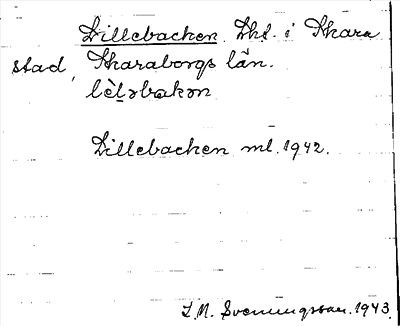 Lillebacken Lht. i Skara
stad, Skaraborgs län.
lèḻəbakən
Lillebacken ml. 1942.
Svenningsson. 1943.